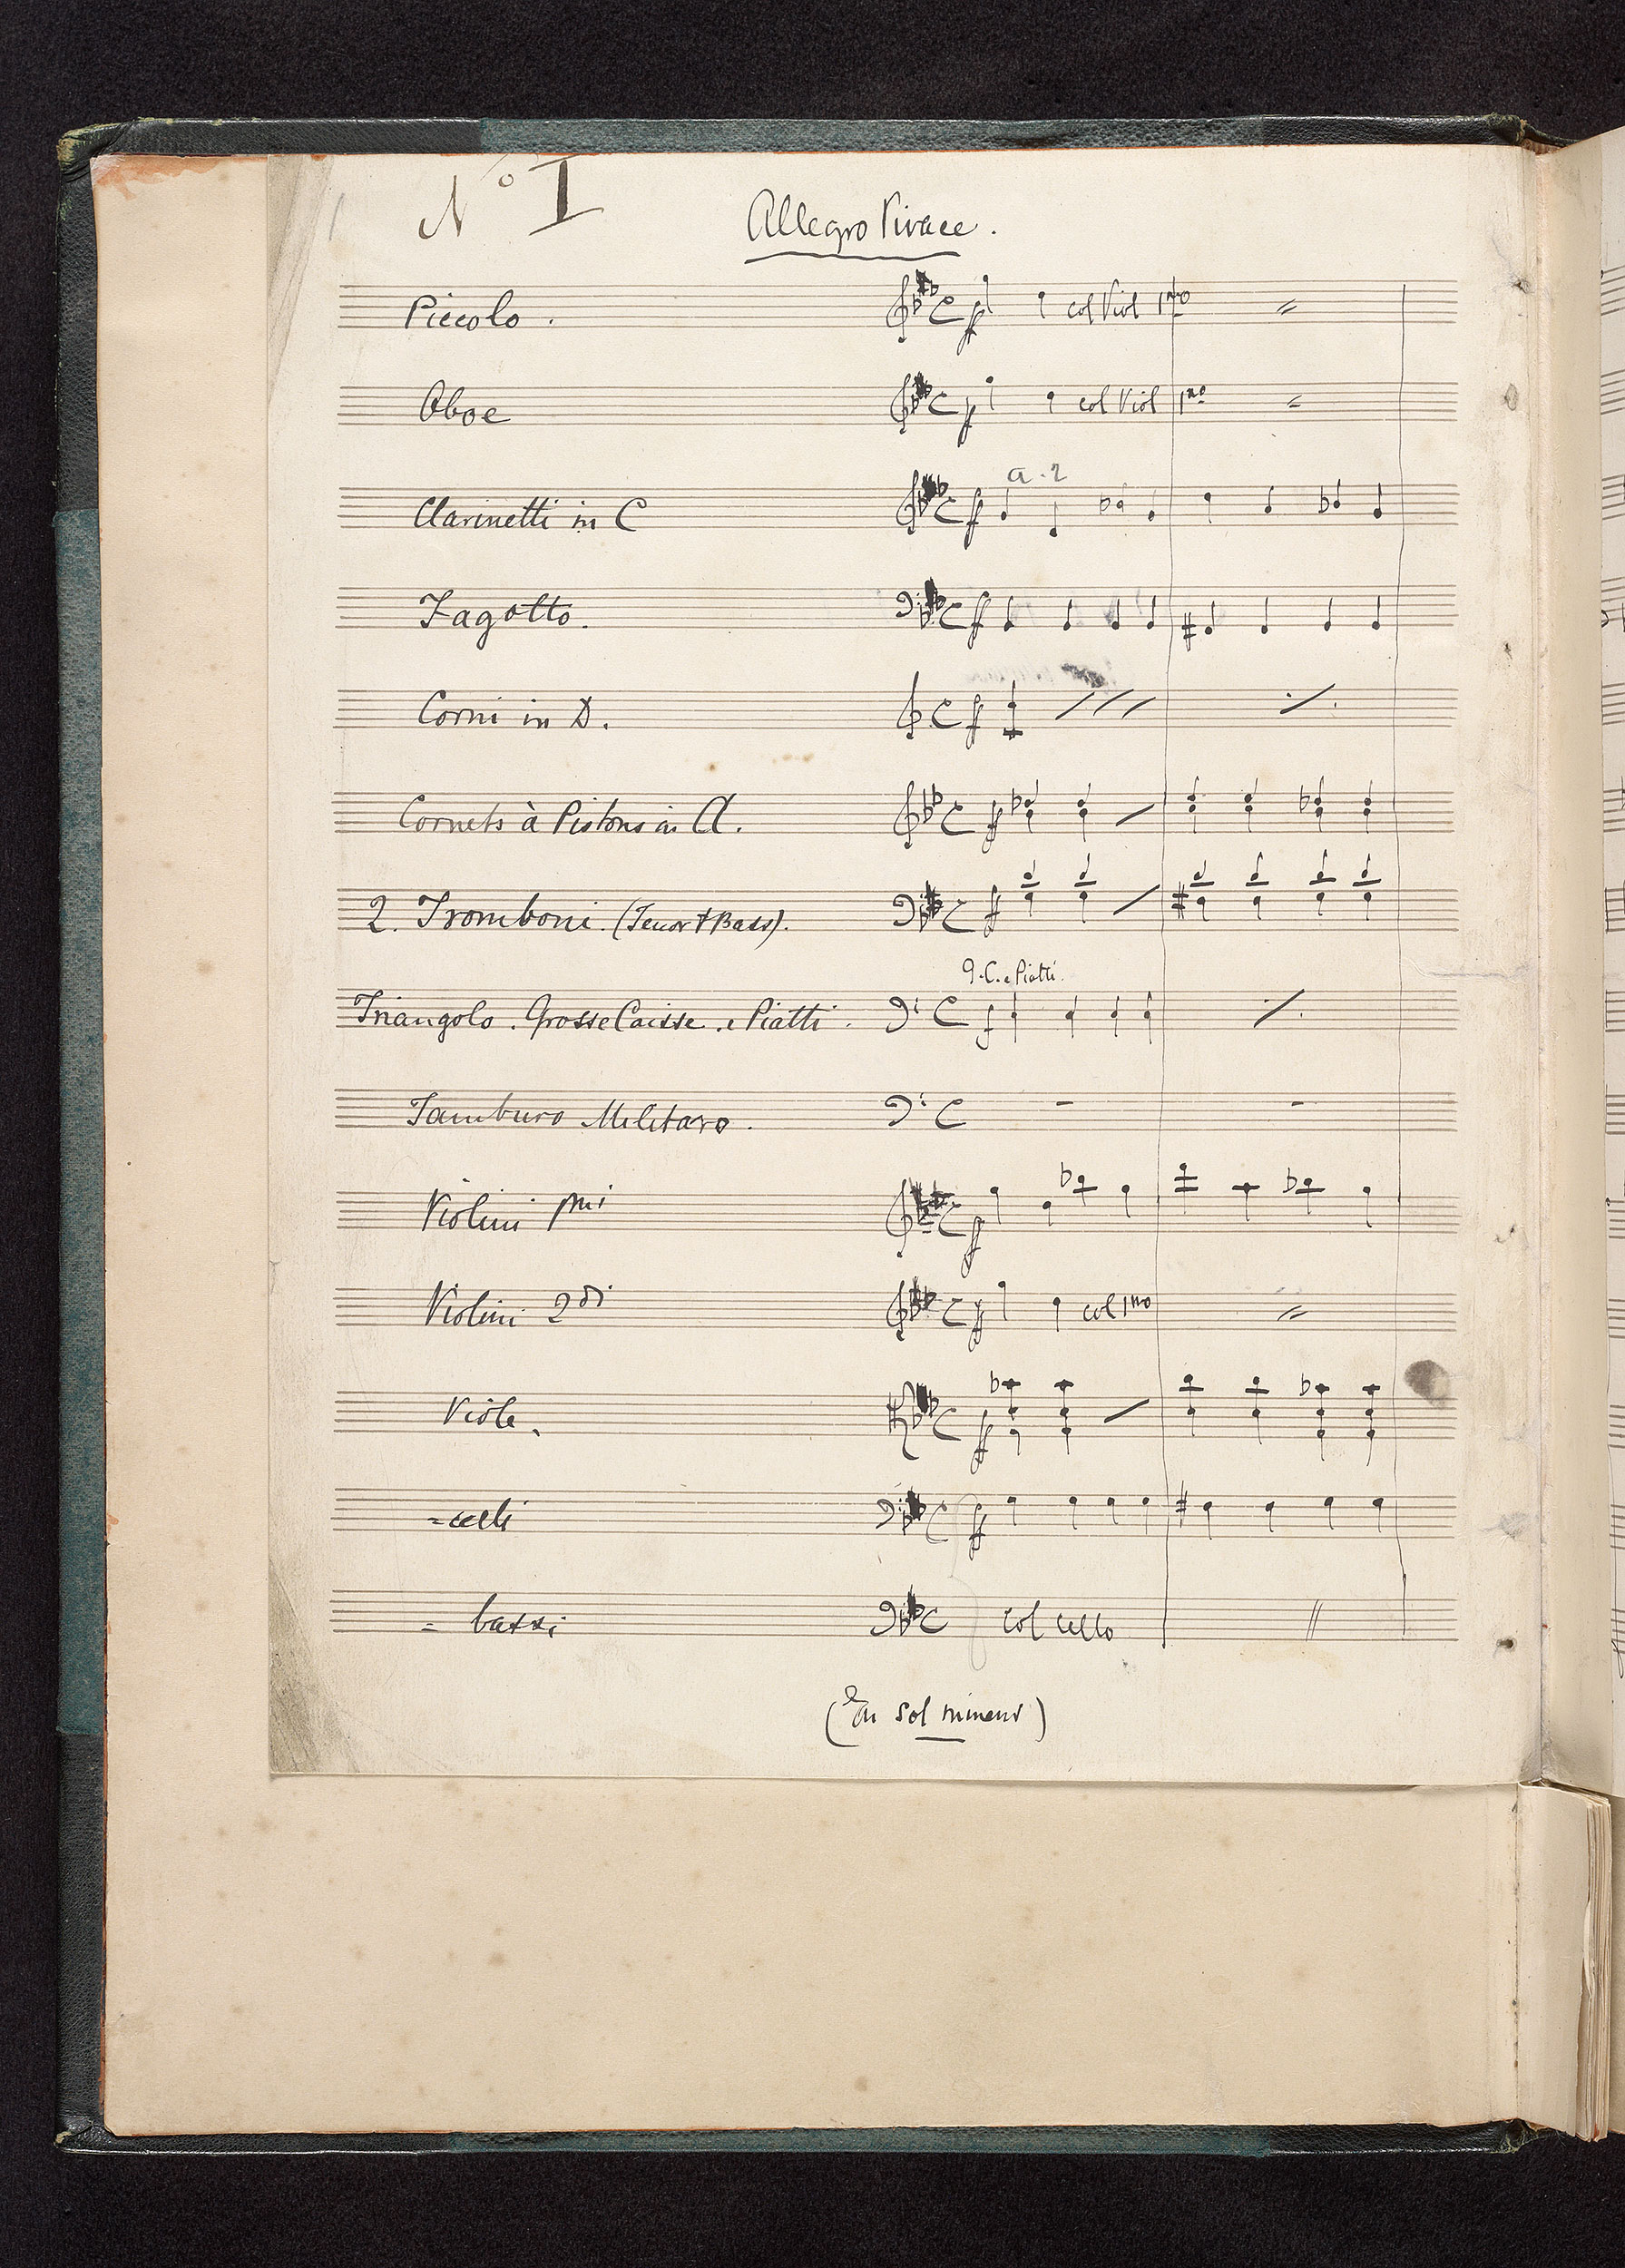 No I
Allegro Vivace.
Piccolo. ff col Viol 1mo
Oboe ff col Viol 1mo
a. 2
Clarinetti in C ff
Fagotto. ff
Corni in D. ff
Cornets à Pistons in A. ff
2. Tromboni. (Tenor & Bass). ff
G. C. e Piatti.
Triangolo. Grosse Caisse. e Piatti. f
Tamburo Militaro.
Violini pmi ff
Violini 2di ff col 1mo
Viole. ff
=celli ff
= bassi col cello
(En sol mineur)